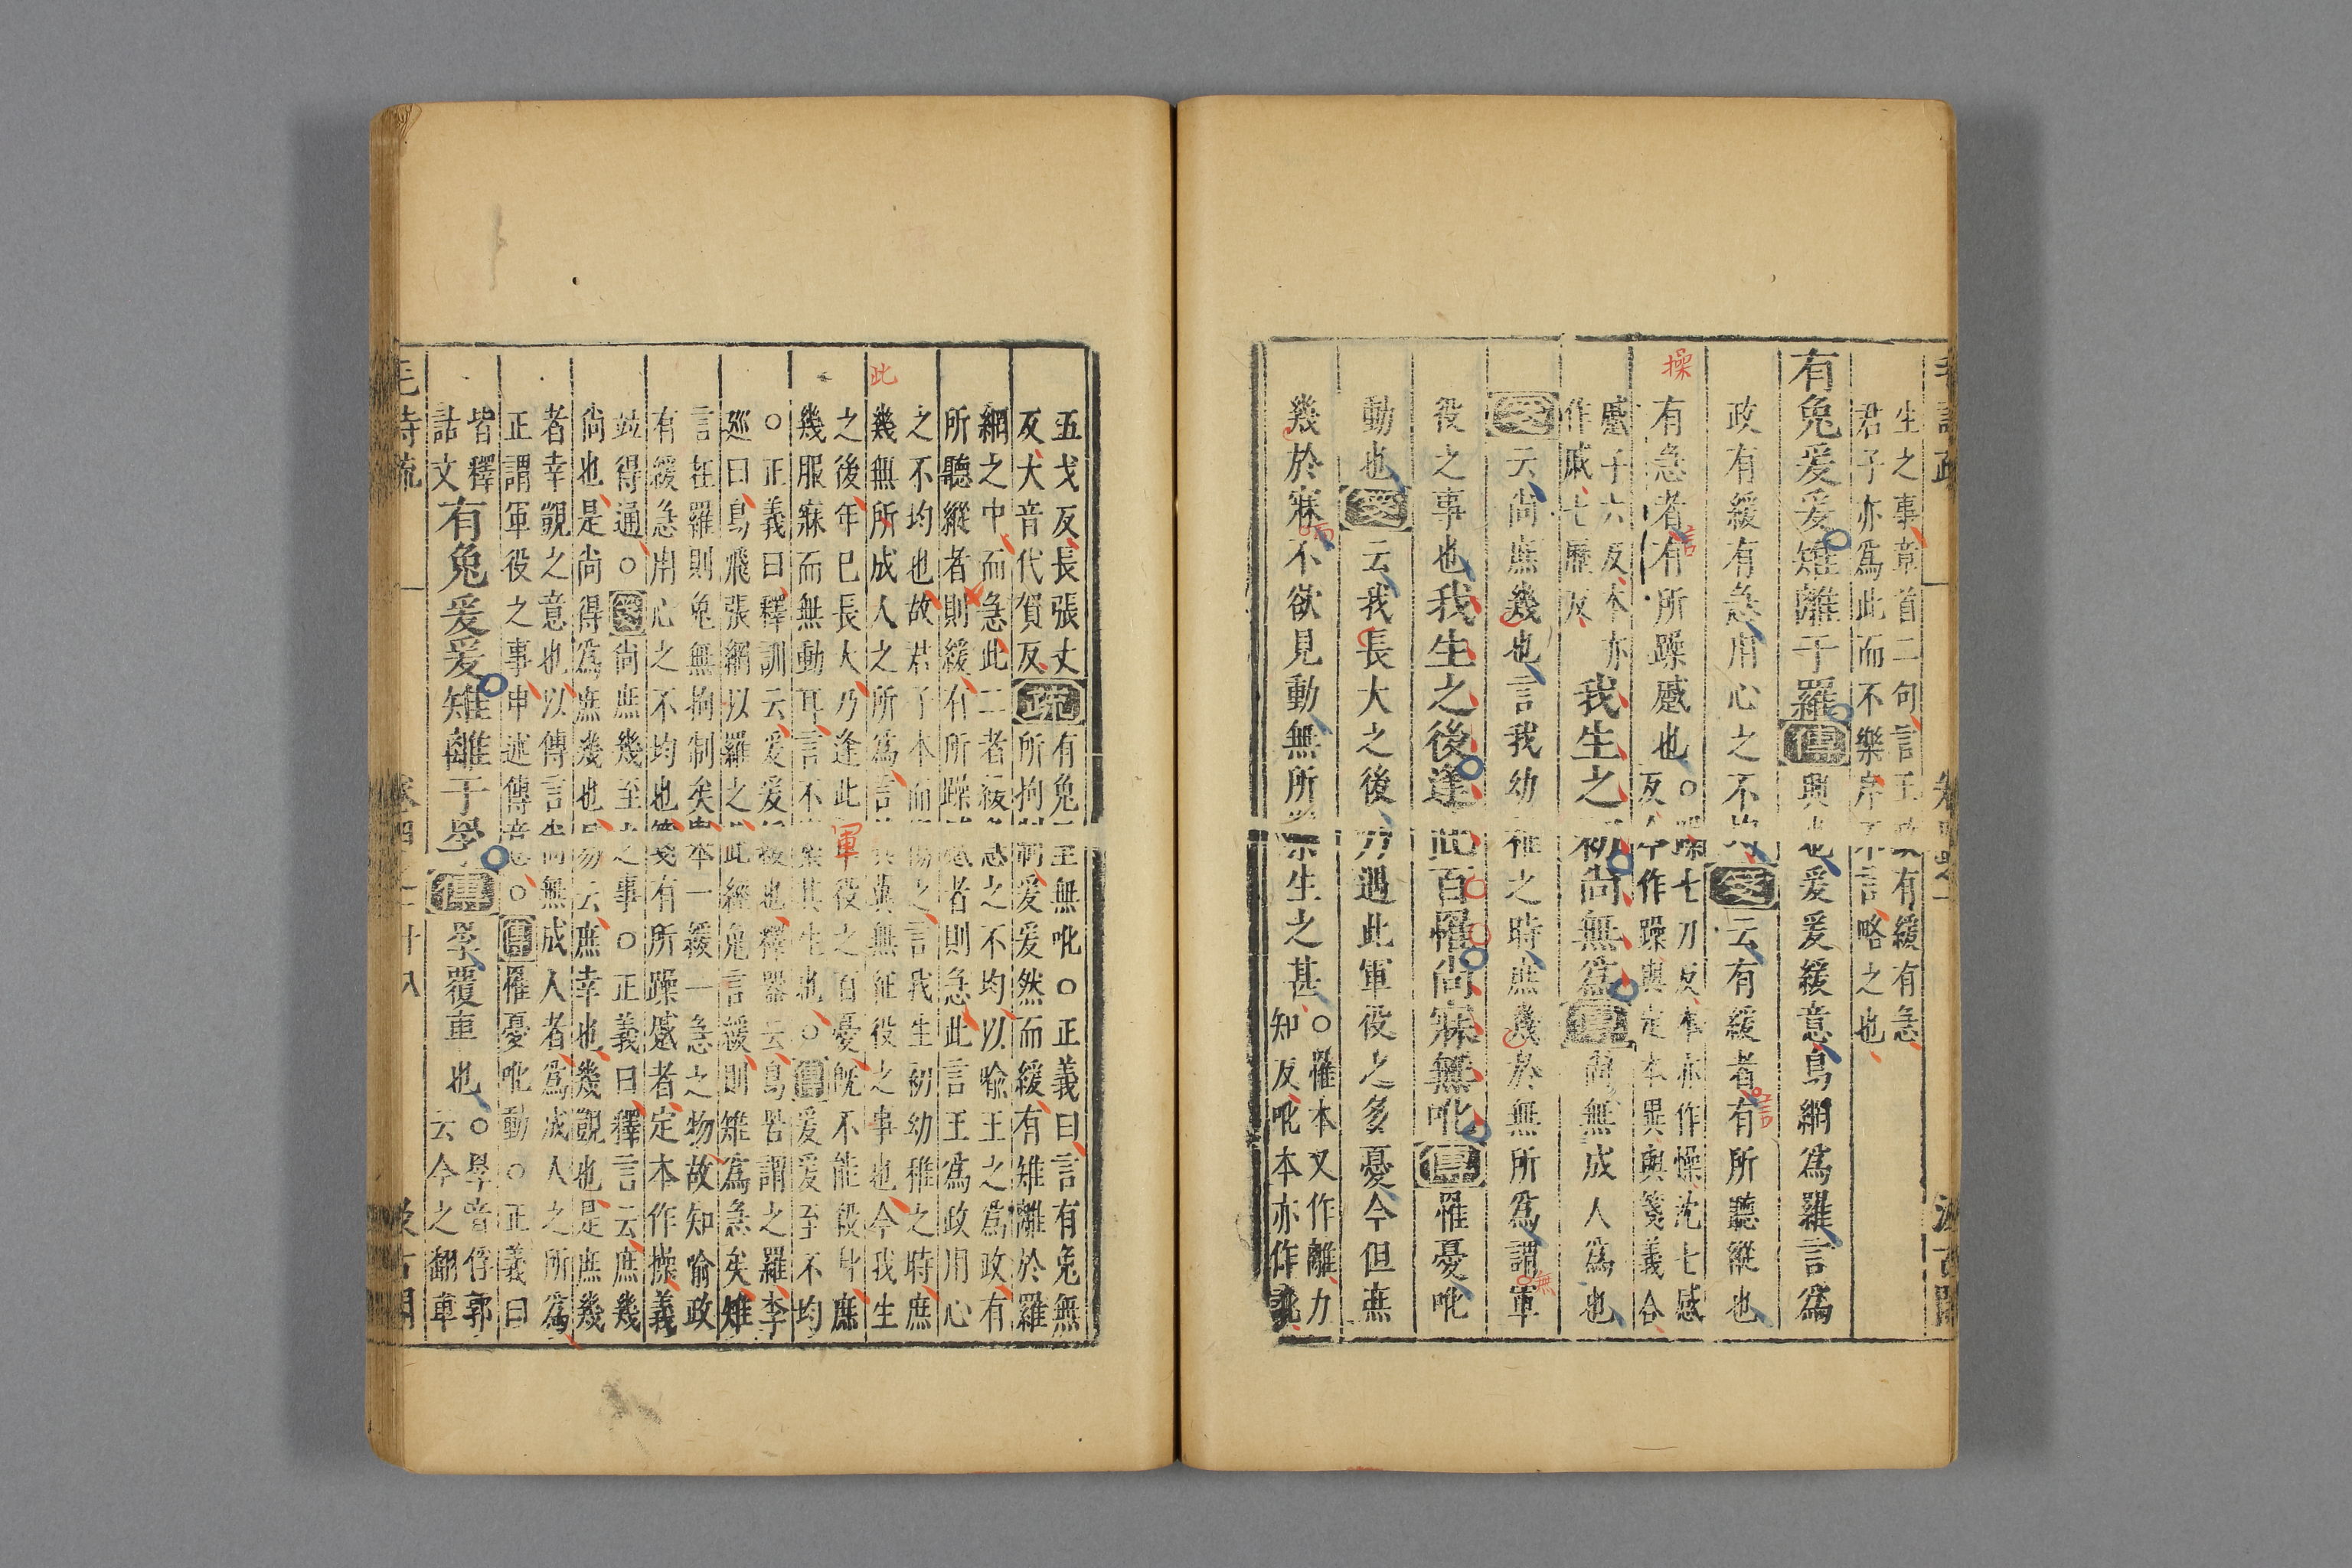 生之事章首二句言王政有緩有急
君子亦爲此而不樂序不言略之也
有兔爰爰雉離于羅傳興也爰爰緩意鳥網爲羅言爲
政有緩有急用心之不均箋云有緩者有所聽縱也
言
操
有急者有所躁蹙也○躁七刀反本亦作懆沈七感
反今作躁與定本異與箋義合
言
蹙子六反本亦
作戚七歷反
我生之初尚無爲傳尚無成人爲也
箋云尚庶幾也言我幼稚之時庶幾於無所爲謂軍
無
役之事也我生之後逢此百罹尚寐無吪傳罹憂吪
動也箋云我長大之後乃遇此軍役之多憂今但庶
幾於寐不欲見動無所樂生之甚○罹本又作離力
知反吪本亦作訛
而
五戈反長張丈
反大音代賀反
疏有兔至無吪○正義曰言有兔無
所拘制爰爰然而緩有雉離於羅
網之中而急此二者緩急之不均以喻王之爲政有
所聽縱者則緩有所躁蹙者則急此言王爲政用心
之不均也故君子本而傷之言我生初幼稚之時庶
幾無所成人之所爲言其冀無征役之事也今我生
此
之後年已長大乃逢此軍役之百憂既不能殺身庶
幾服寐而無動耳言不樂其生也○傳爰爰至不均
○正義曰釋訓云爰爰緩也釋器云鳥罟謂之羅李
巡曰鳥飛張網以羅之此經兔言緩則雉爲急矣雉
言在羅則兔無拘制矣舉一緩一急之物故知喻政
有緩急用心之不均也箋有所躁蹙者定本作操義
竝得通○箋尚庶幾至之事○正義曰釋言云庶幾
尚也是尚得爲庶幾也易云庶幸也幾覬也是庶幾
者幸覬之意也以傳言尚無成人者爲成人之所爲
正謂軍役之事申述傳意○傳罹憂吪動○正義曰
皆釋
詁文
有兔爰爰雉離于罦傳罦覆車也○罦音俘郭
云今之翻車
毛詩疏